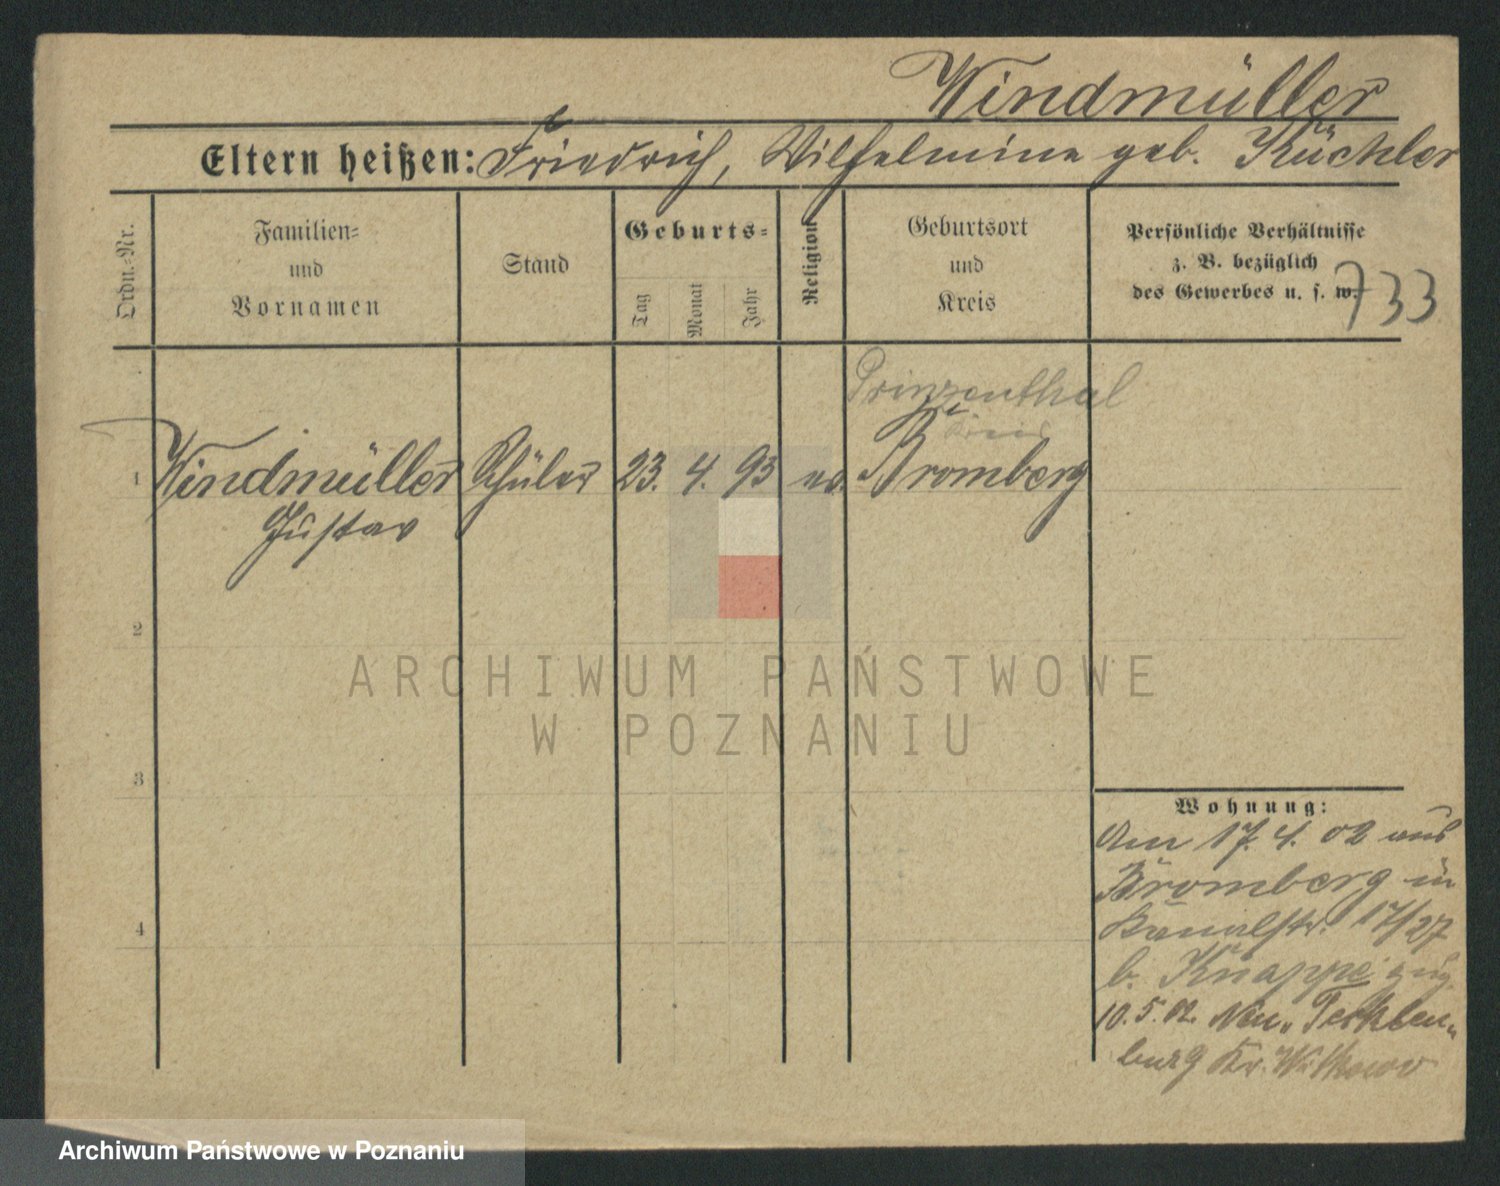 Windmüller
Eltern heißen: Friedrich, Wilhelmine geb. Küchler
Ordn.-Nr.
Familien-
und
Vornamen
Stand
Geburts-
Tag
Monat
Jahr
Religion
Geburtsort
und
Kreis
Persönliche Verhältnisse
z. B. bezüglich
des Gewerbes u. s. w.
733
Prinzenthal
Kreis
1 Windmüller Schüler 23. 4. 93 ev. Bromberg
Gustav
2
3
4
Wohnung:
Am 17. 4. 02 aus
Bromberg in
Kanalstr. 17/27
b. Knappe zug.
10. 5. 02. Neu Tecklen-
burg Kr. Witkowo
ARCHIWUM PAŃSTWOWE
W POZNANIU
Archiwum Państwowe w Poznaniu